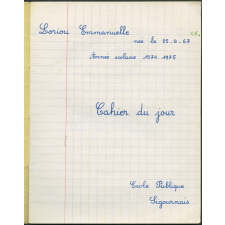 Loriou Emmanuelle
née le 25-9-67
CE₁
Année scolaire 1974-1975
Cahier du jour
Ecole Publique
Sigournais